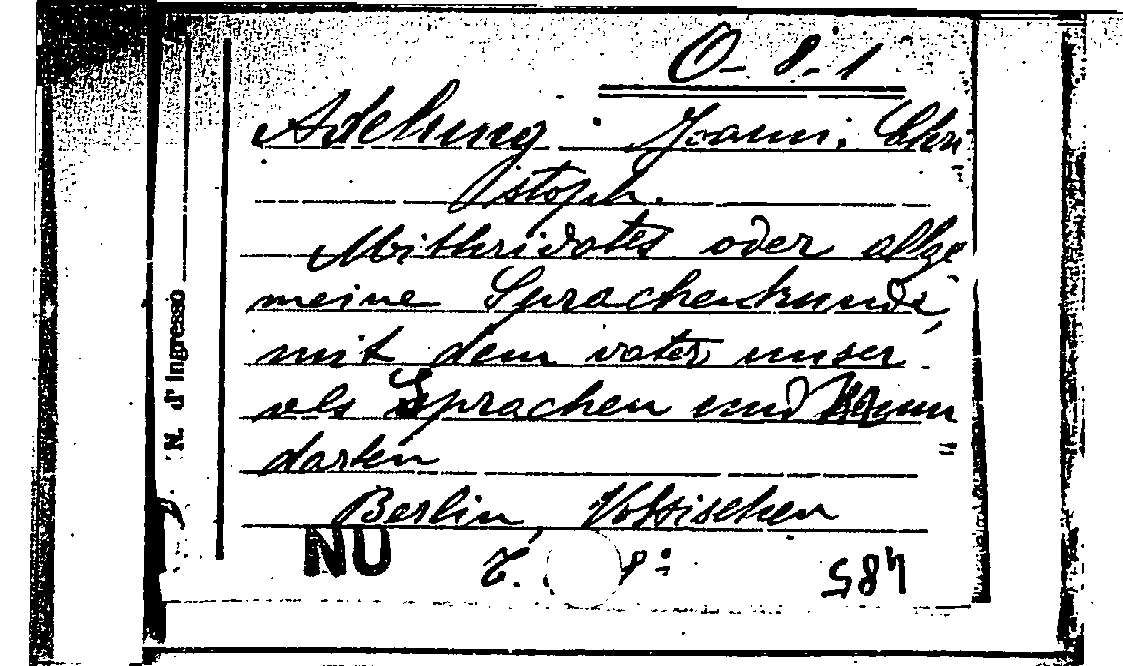 O-8-1
Adelung Joann. Chri
stoph.
Mithridates oder allge
meine Sprachenkunde,
mit dem vater unser
als Sprachen und Mun
darten
Berlin, Vossischen
NU 8°
485
N. d'Ingresso